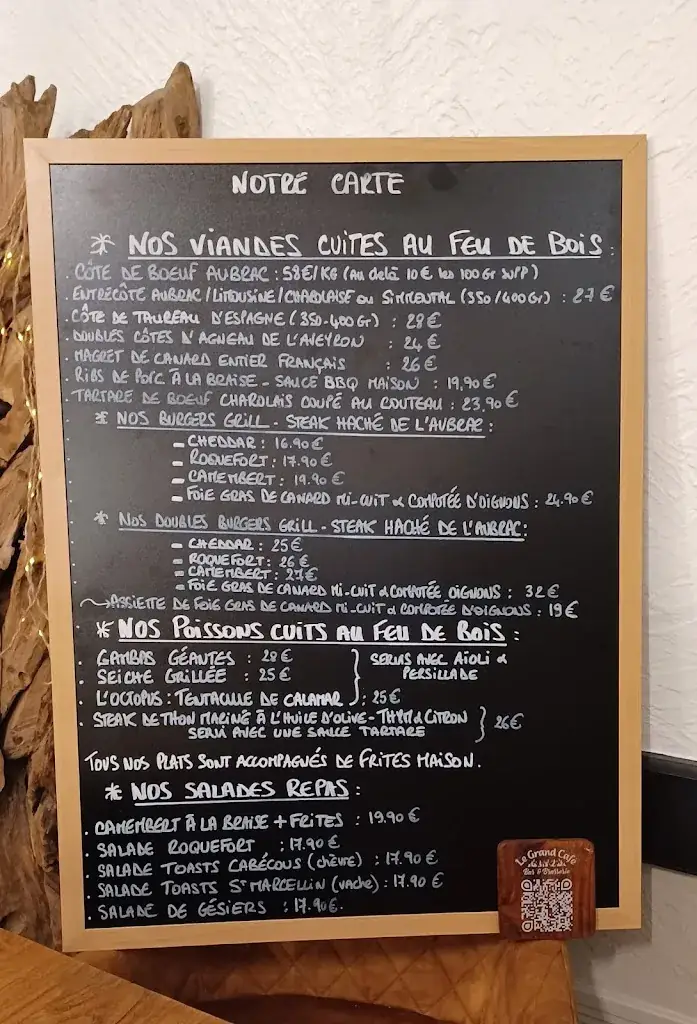 NOTRE CARTE
* NOS VIANDES CUITES AU FEU DE BOIS :
. CÔTE DE BOEUF AUBRAC : 58€/KG (AU delà 10€ les 100Gr SUPP)
. ENTRECÔTE AUBRAC / LIMOUSINE / CHAROLAISE OU SIMMENTAL (350/400Gr) : 27€
. CÔTE DE TAUREAU D'ESPAGNE (350-400Gr) : 28€
. DOUBLES CÔTES D'AGNEAU DE L'AVEYRON : 24€
. MAGRET DE CANARD ENTIER FRANÇAIS : 26€
. RIBS DE PORC À LA BRAISE - SAUCE BBQ MAISON : 19,90€
. TARTARE DE BOEUF CHAROLAIS COUPÉ AU COUTEAU : 23.90€
* NOS BURGERS GRILL - STEAK HACHÉ DE L'AUBRAC :
- CHEDDAR : 16.90€
- ROQUEFORT : 17.90€
- CAMEMBERT : 19.90€
- FOIE GRAS DE CANARD MI-CUIT & COMPOTÉE D'OIGNONS : 24.90€
* NOS DOUBLES BURGERS GRILL - STEAK HACHÉ DE L'AUBRAC :
- CHEDDAR : 25€
- ROQUEFORT : 26€
- CAMEMBERT : 27€
- FOIE GRAS DE CANARD MI-CUIT & COMPOTÉE OIGNONS : 32€
ASSIETTE DE FOIE GRAS DE CANARD MI-CUIT & COMPOTÉE D'OIGNONS : 19€
* NOS POISSONS CUITS AU FEU DE BOIS :
. GAMBAS GÉANTES : 28€
. SEICHE GRILLÉE : 25€
SERVIS AVEC AÏOLI &
PERSILLADE
. L'OCTOPUS : TENTACULE DE CALAMAR : 25€
. STEAK DE THON MARINÉ À L'HUILE D'OLIVE - THYM & CITRON
SERVI AVEC UNE SAUCE TARTARE
26€
TOUS NOS PLATS SONT ACCOMPAGNÉS DE FRITES MAISON.
* NOS SALADES REPAS :
. CAMEMBERT À LA BRAISE + FRITES : 19.90€
. SALADE ROQUEFORT : 17.90€
. SALADE TOASTS CABÉCOUS (chèvre) : 17.90€
. SALADE TOASTS ST MARCELLIN (vache) : 17.90€
. SALADE DE GÉSIERS : 17.90€.
Le Grand Café
Bar & Brasserie